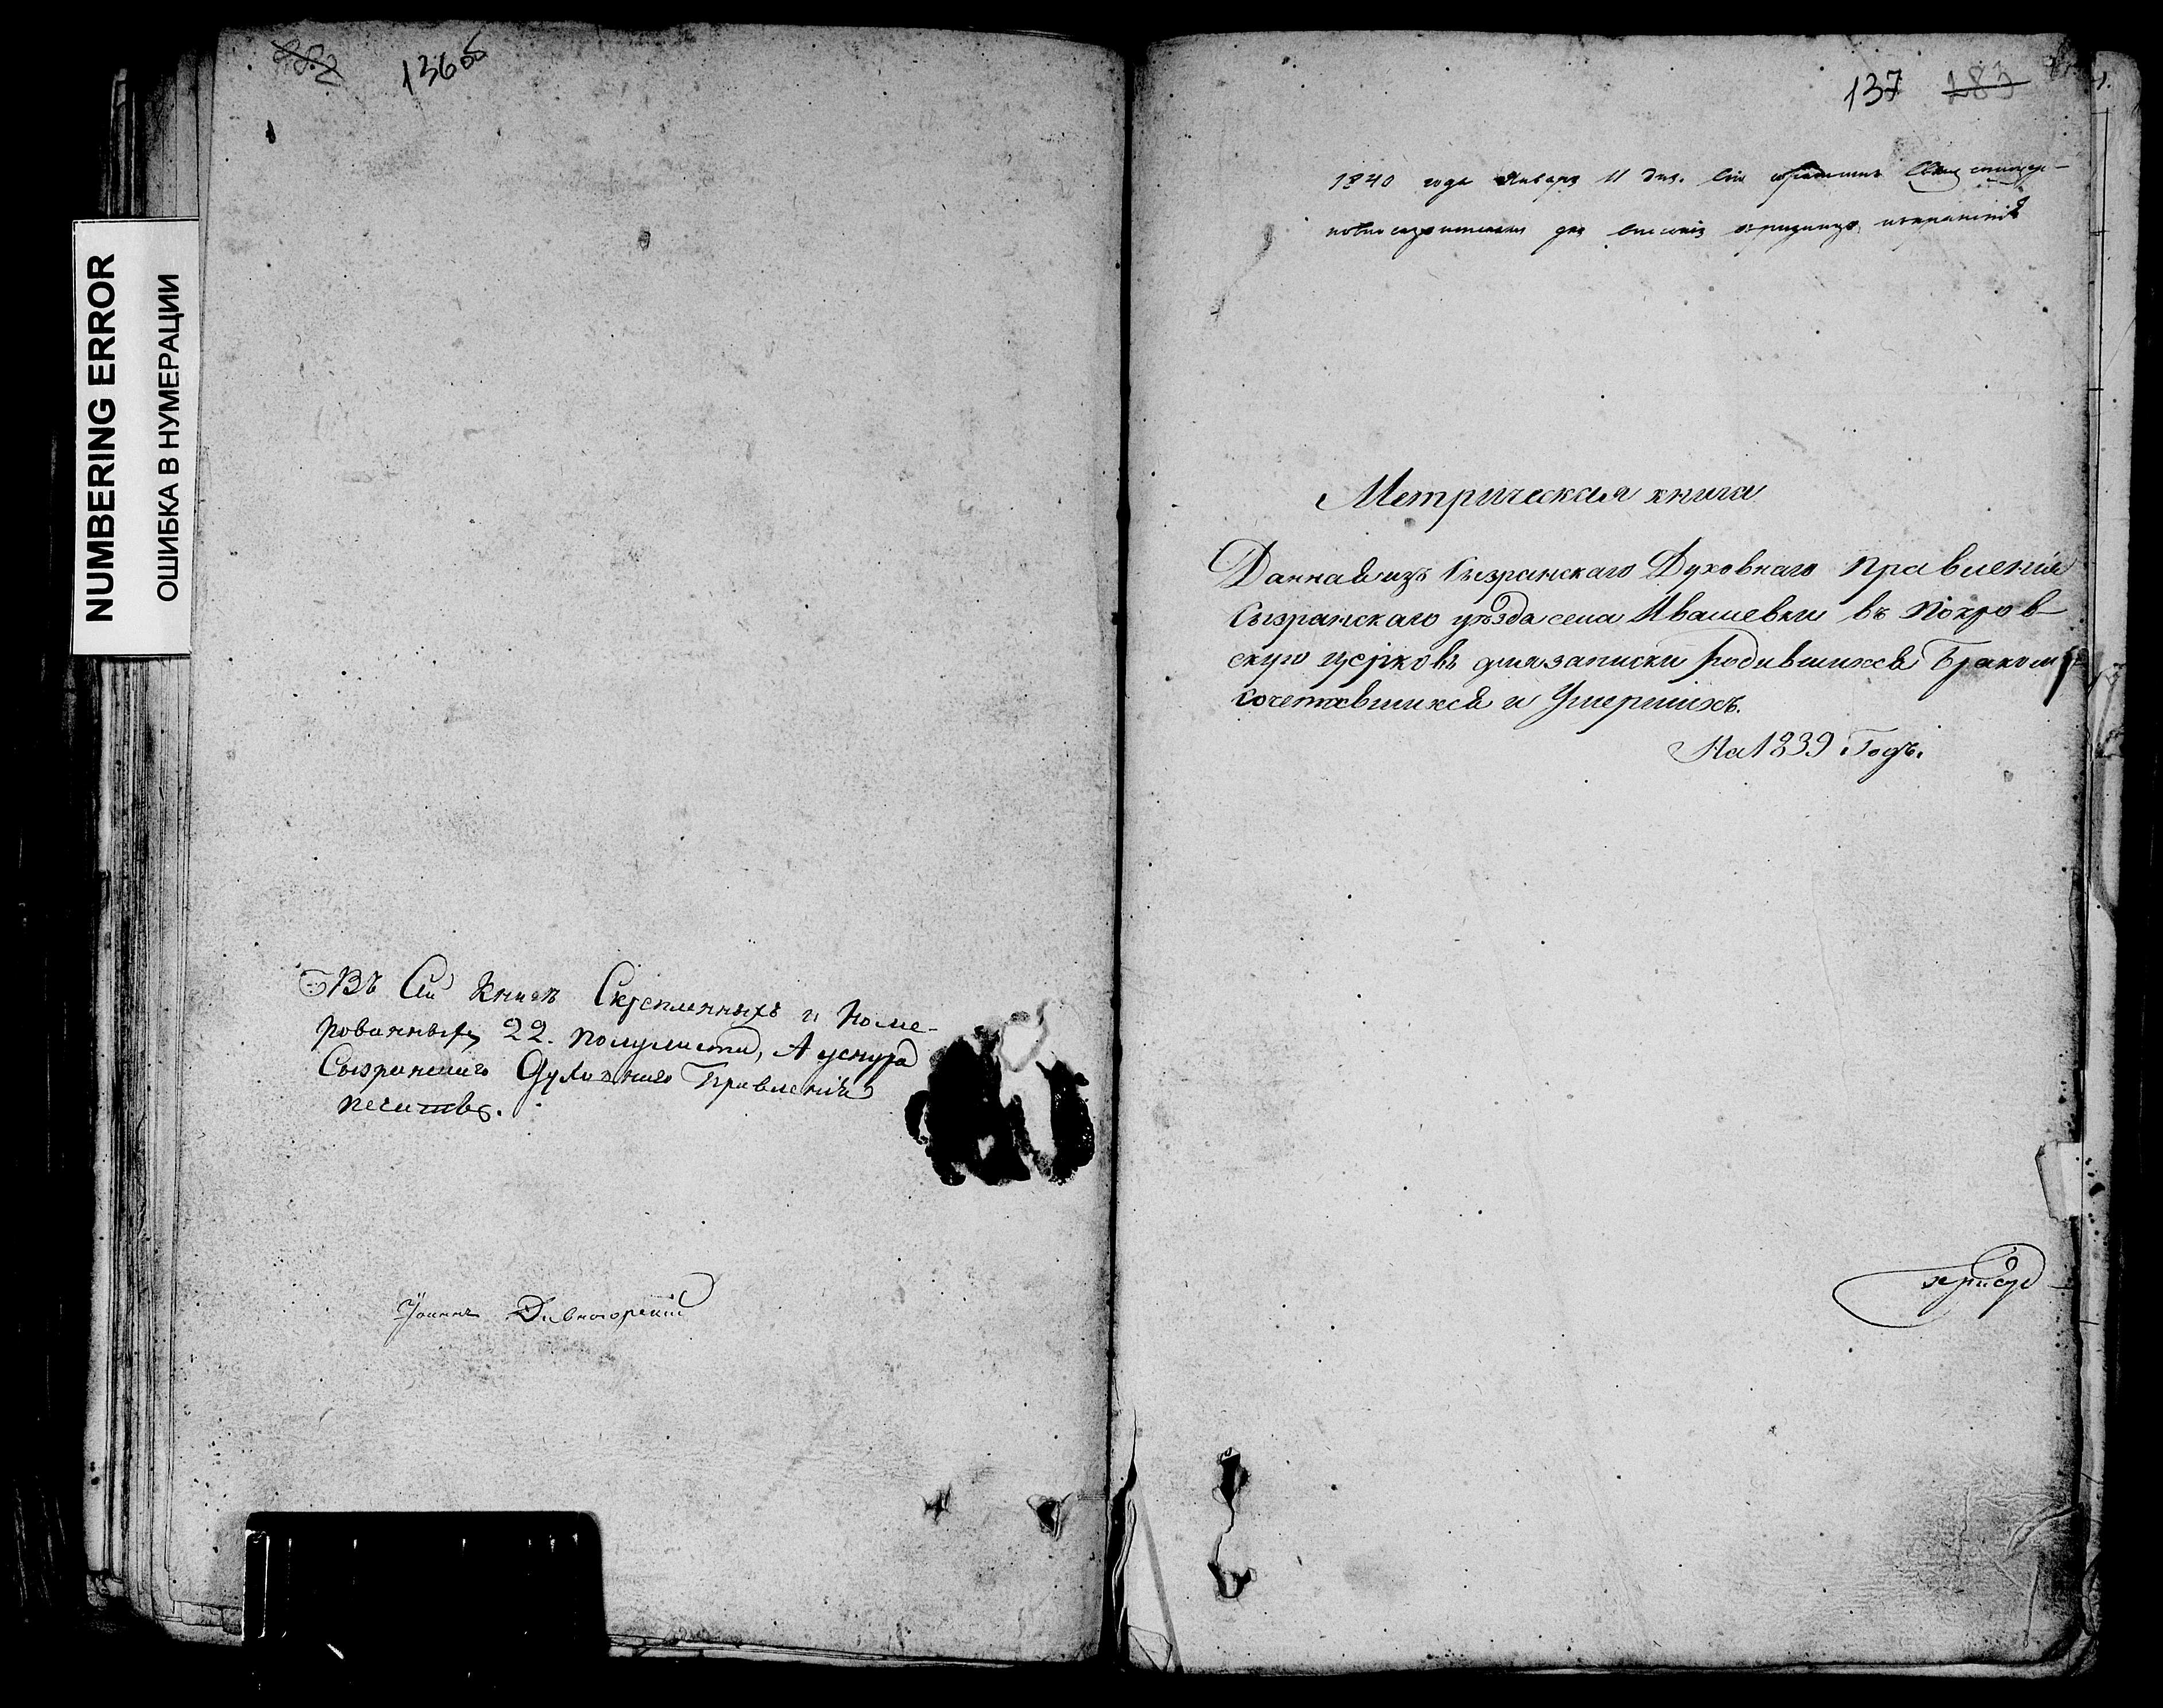 NUMBERING ERROR
ОШИБКА В НУМЕРАЦИИ
182
136об
Въ Сей Книгѣ Скрепленныхъ и Номе-
рованныхъ 22. полулиста, А уснура
Сызранскаго Духовнаго Правленія
печать.
Іоаннъ Дивногорскій
137 183
1840 года Января 11 дня. Сія
для
Метрическая книга
Данная изъ Сызранскаго Духовнаго Правленія
Сызранскаго уѣзда села Ивашевки въ Покров-
скую церковь для записки Родившихся Бракомъ
сочетавшихся и Умершихъ.
На 1839 Годъ.